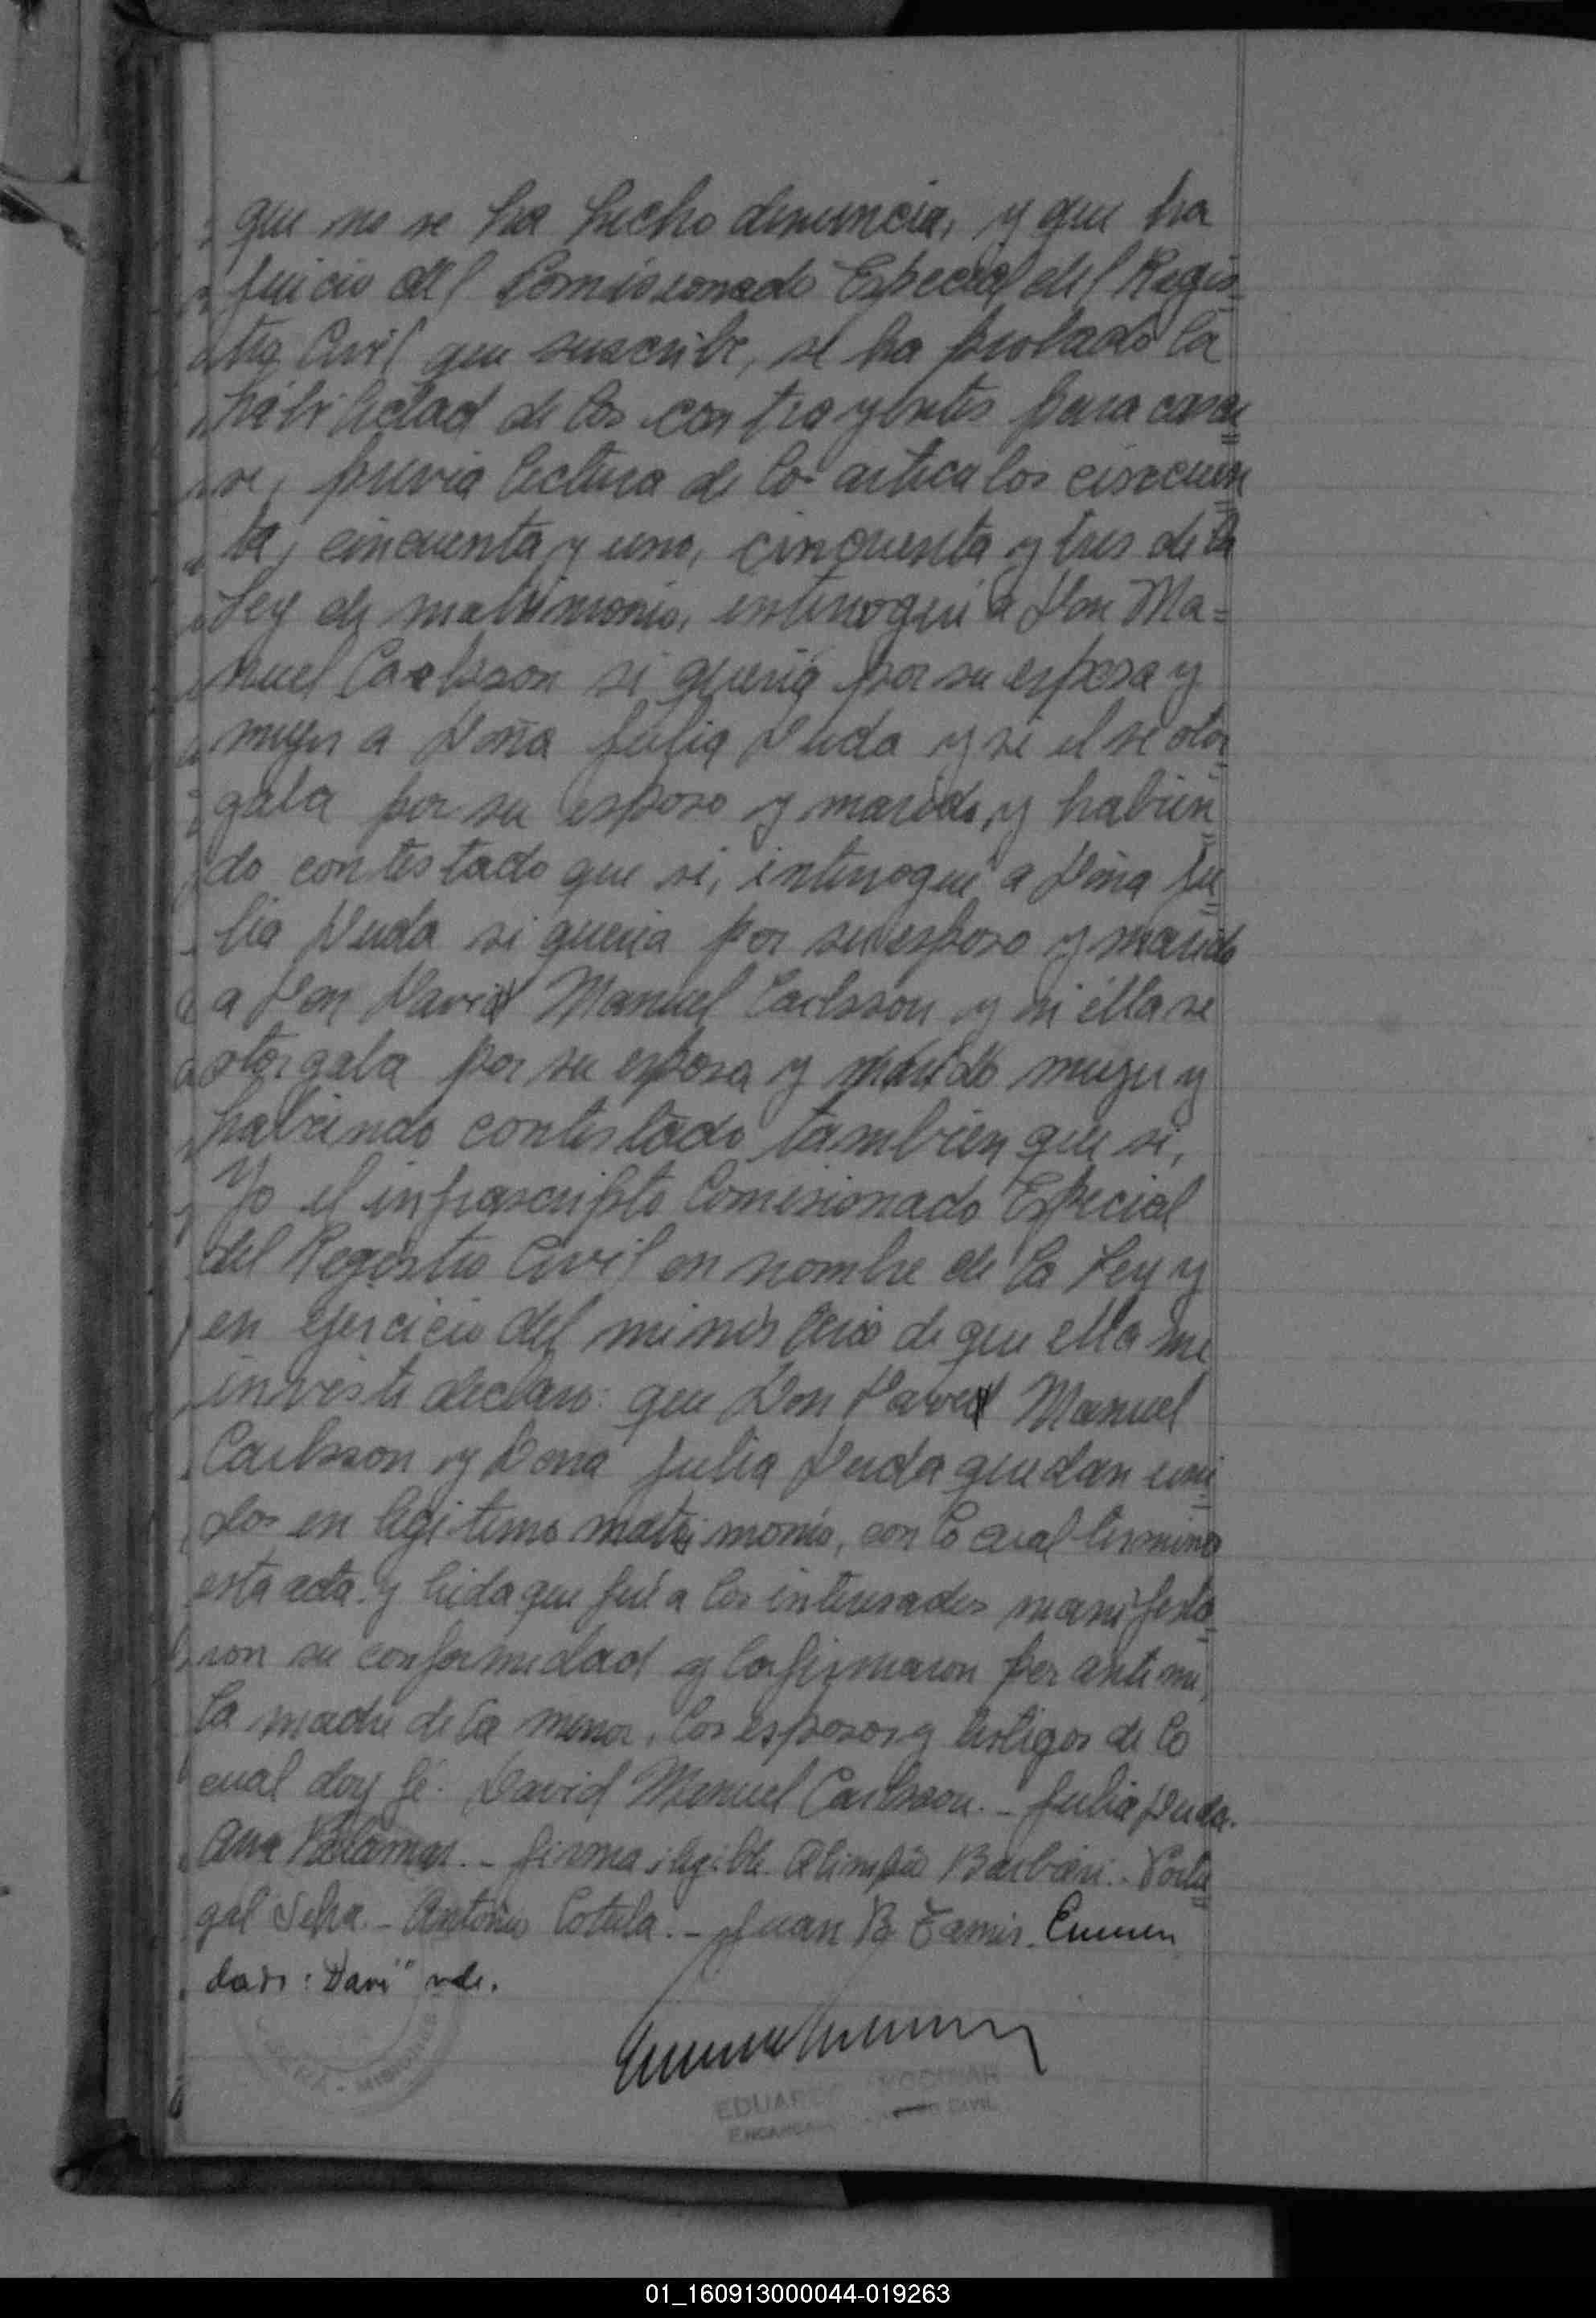 que no se ha hecho denuncia, y que ha
juicio del Comisionado Especial del Regis
tro Civil que suscribe, se ha probado la
habilidad de los contrayentes para casar
se, previa lectura de los articulos cincuen
ta, cincuenta y uno, cincuenta y tres de la
Ley de matrimonio, interrogué a Don Ma=
nuel Carlsson si queria por su esposa y
mujer a Doña Julia Duda y si el se otor
gaba por su esposo y marido, y habien
do contestado que si, interrogué a Doña Ju
lia Duda si queria por su esposo y marido
a Don David Manuel Carlsson y si élla se
otorgaba por su esposa y marido mujer y
habiendo contestado tambien que si,
Yo el infrascripto Comisionado Especial
del Registro Civil en nombre de la Ley y
en ejercicio del ministerio de que ella me
inviste declaro: que Don David Manuel
Carlsson y Dona Julia Duda quedan uni
dos en legitimo matrimonio, con lo cual termino
esta acta. y leida que fué a los interesados manifesta
ron su conformidad y la firmaron por ante mi,
la madre de la menor, los esposos y testigos de lo
cual doy fé. David Manuel Carlsson. - Julia Duda.
Ana - firma ilegible Olimpio Barbieri. - Portu
gal - Antonio Cotula. - Juan B. Enmen
dado: "Davi" vale.
MISIONES
EDUAR
CIVIL
01_160913000044-019263